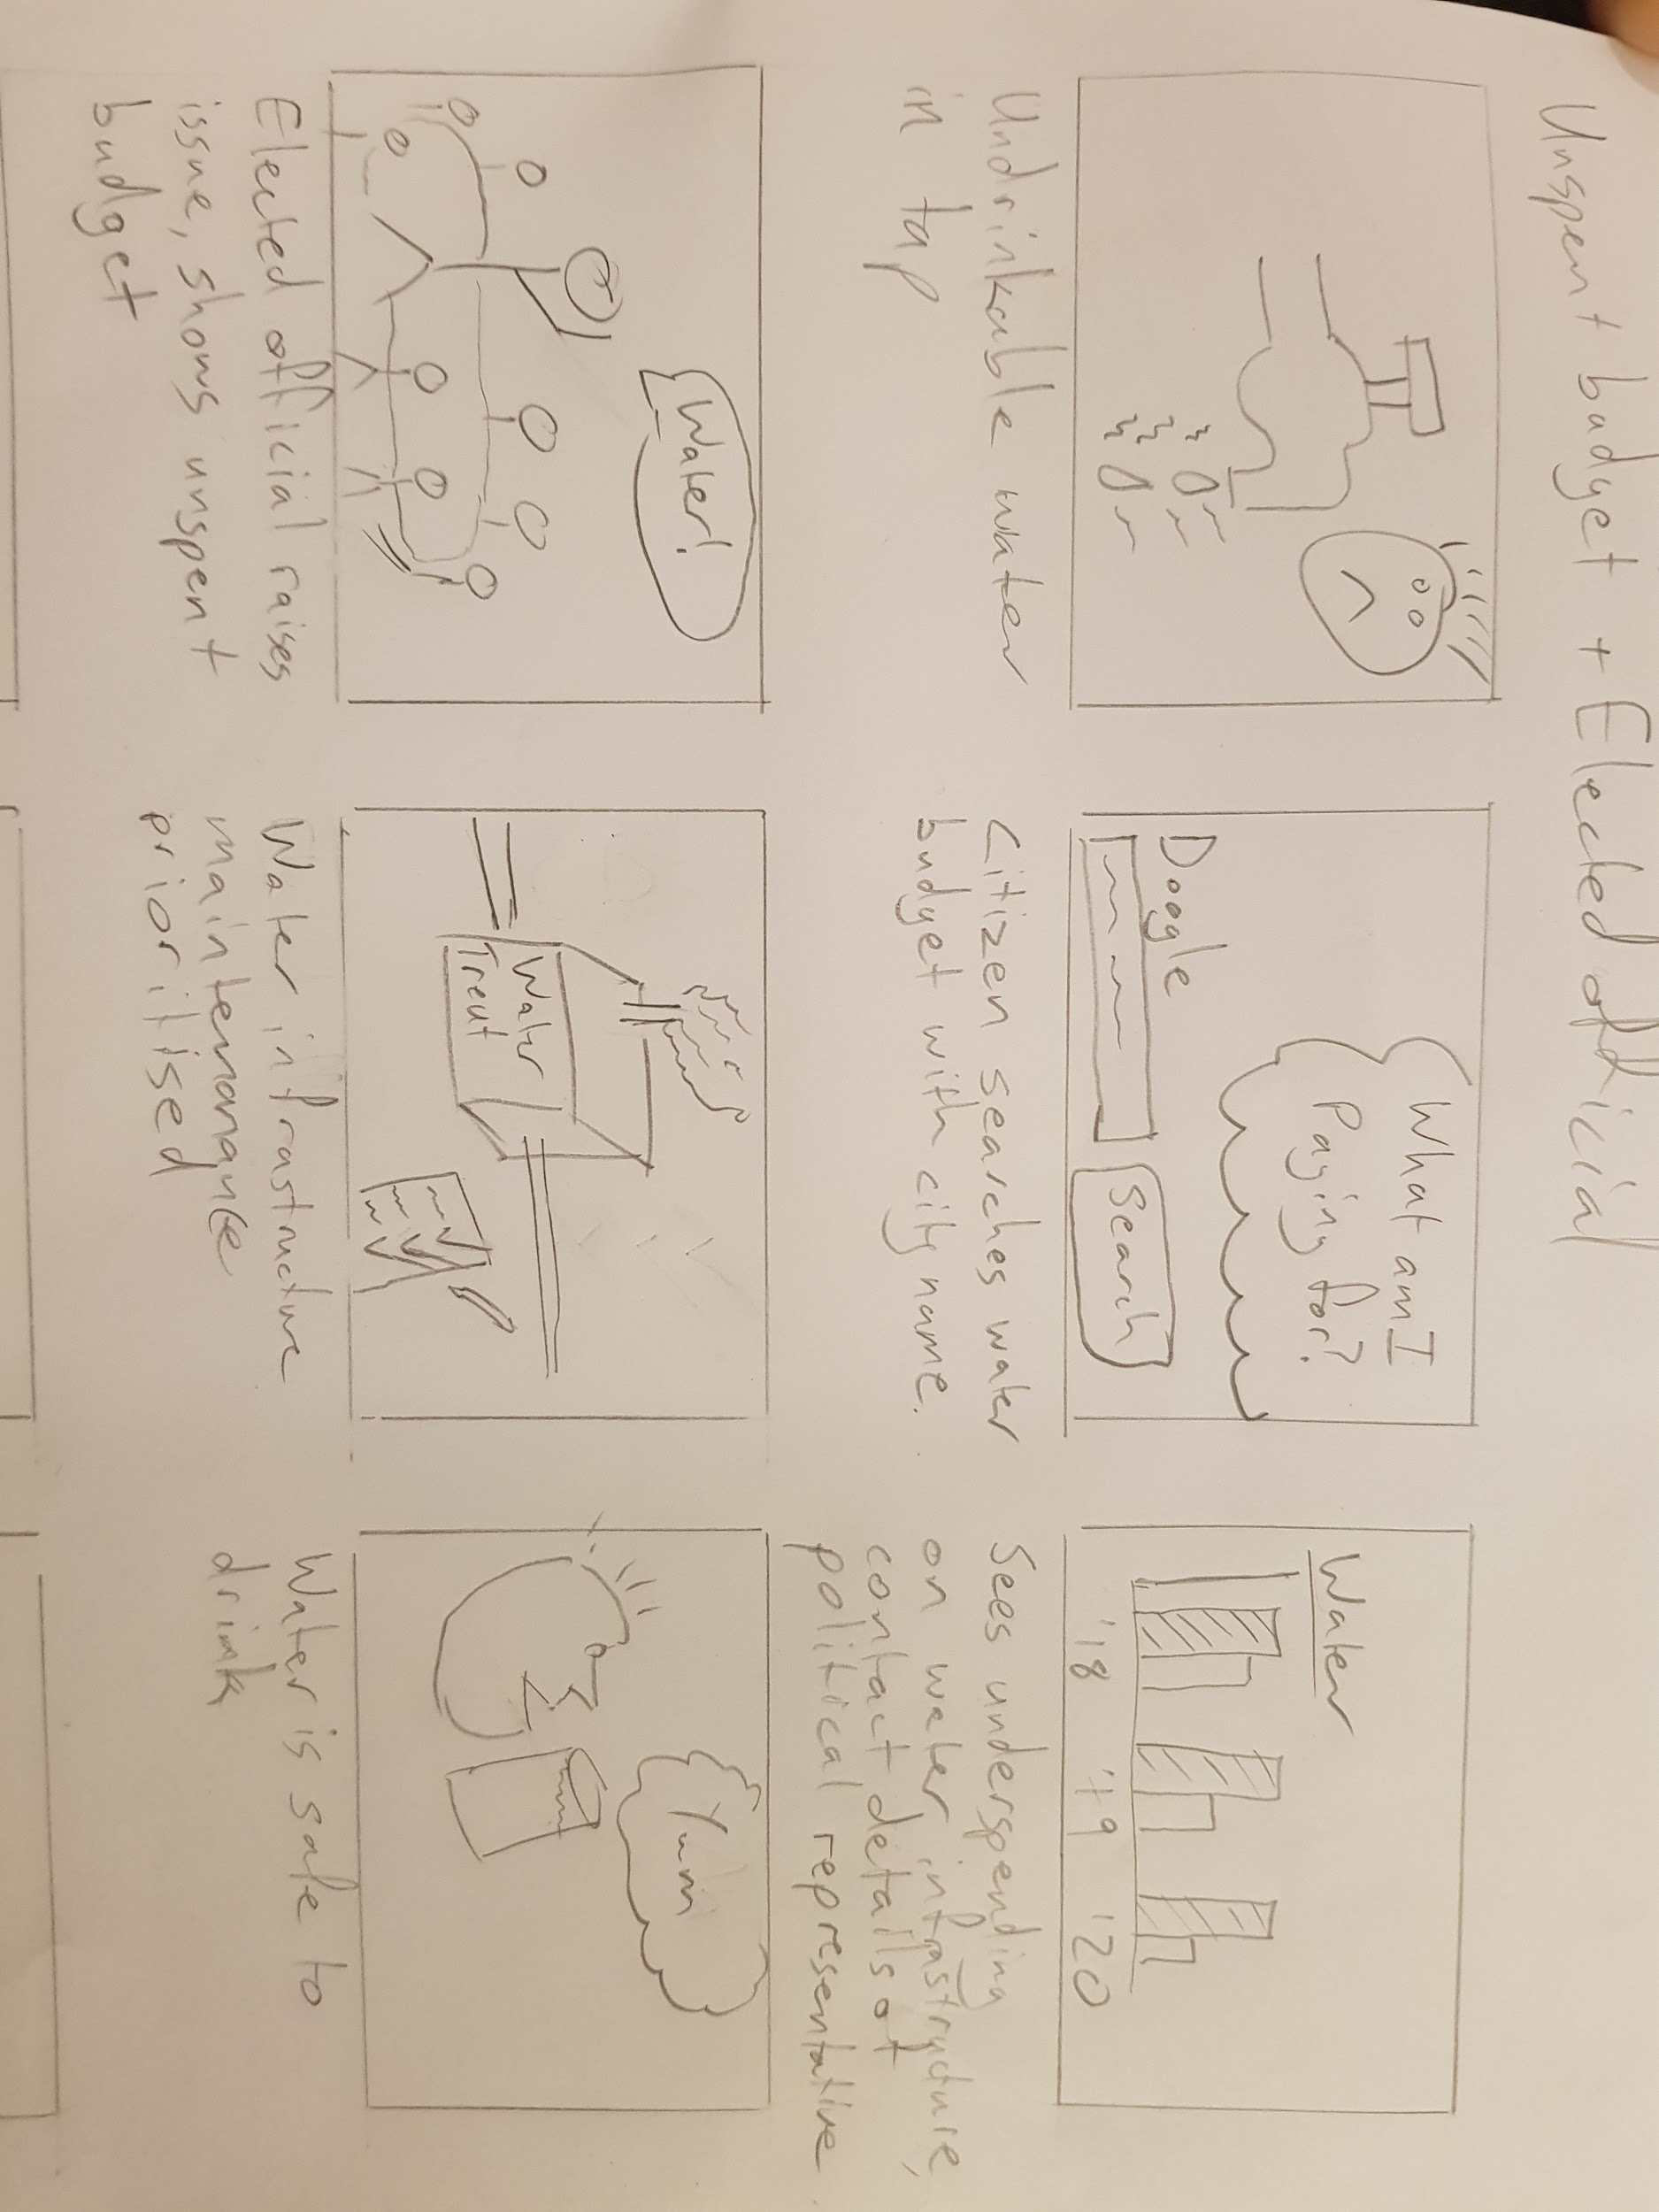 Unspent budget + Elected official
Undrinkable water
in tap
What am I
Paying for?
Doogle
Search
Citizen searches water
budget with city name.
Water
'18 '19 '20
Sees underspending
on water infrastructure,
contact details of
political representative
Water!
Elected official raises
issue, shows unspent
budget
Water
Treat
Water infrastructure
maintenanance
prioritised
Yum
Water is safe to
drink